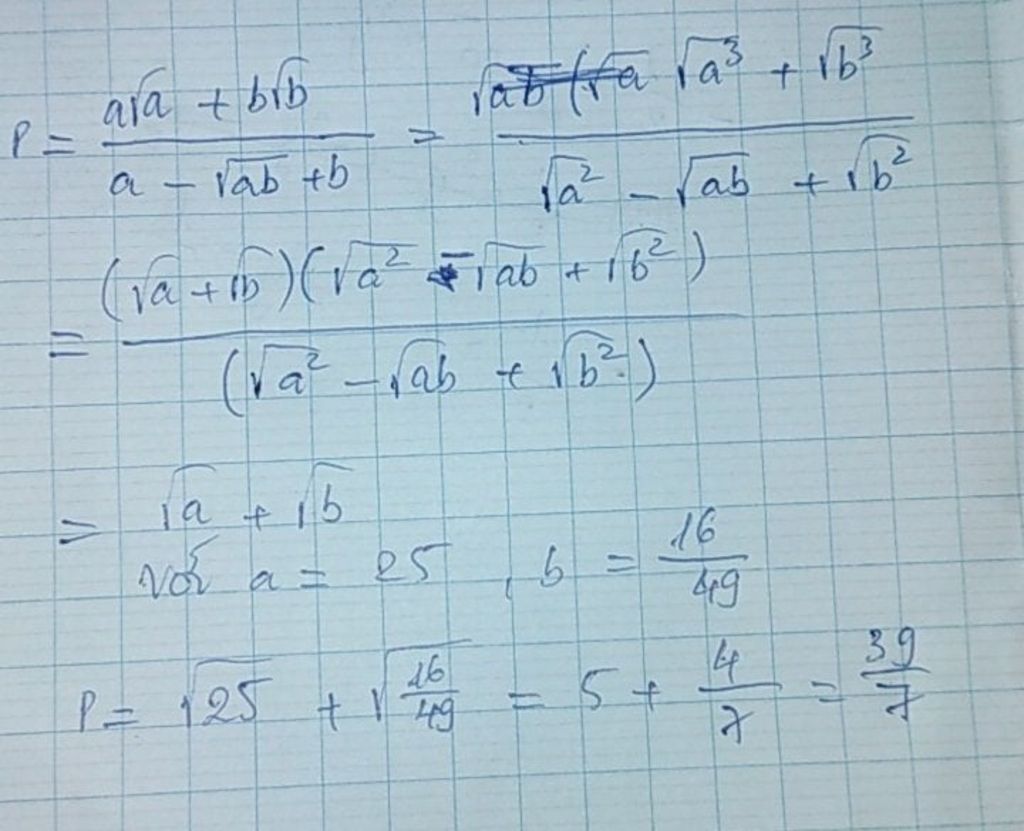 P = (a√a + b√b)/(a - √ab + b) = (√a³ + √b³)/(√a² - √ab + √b²)
= ((√a + √b)(√a² - √ab + √b²))/((√a² - √ab + √b²))
= √a + √b
với a = 25, b = 16/49
P = √25 + √(16/49) = 5 + 4/7 = 39/7